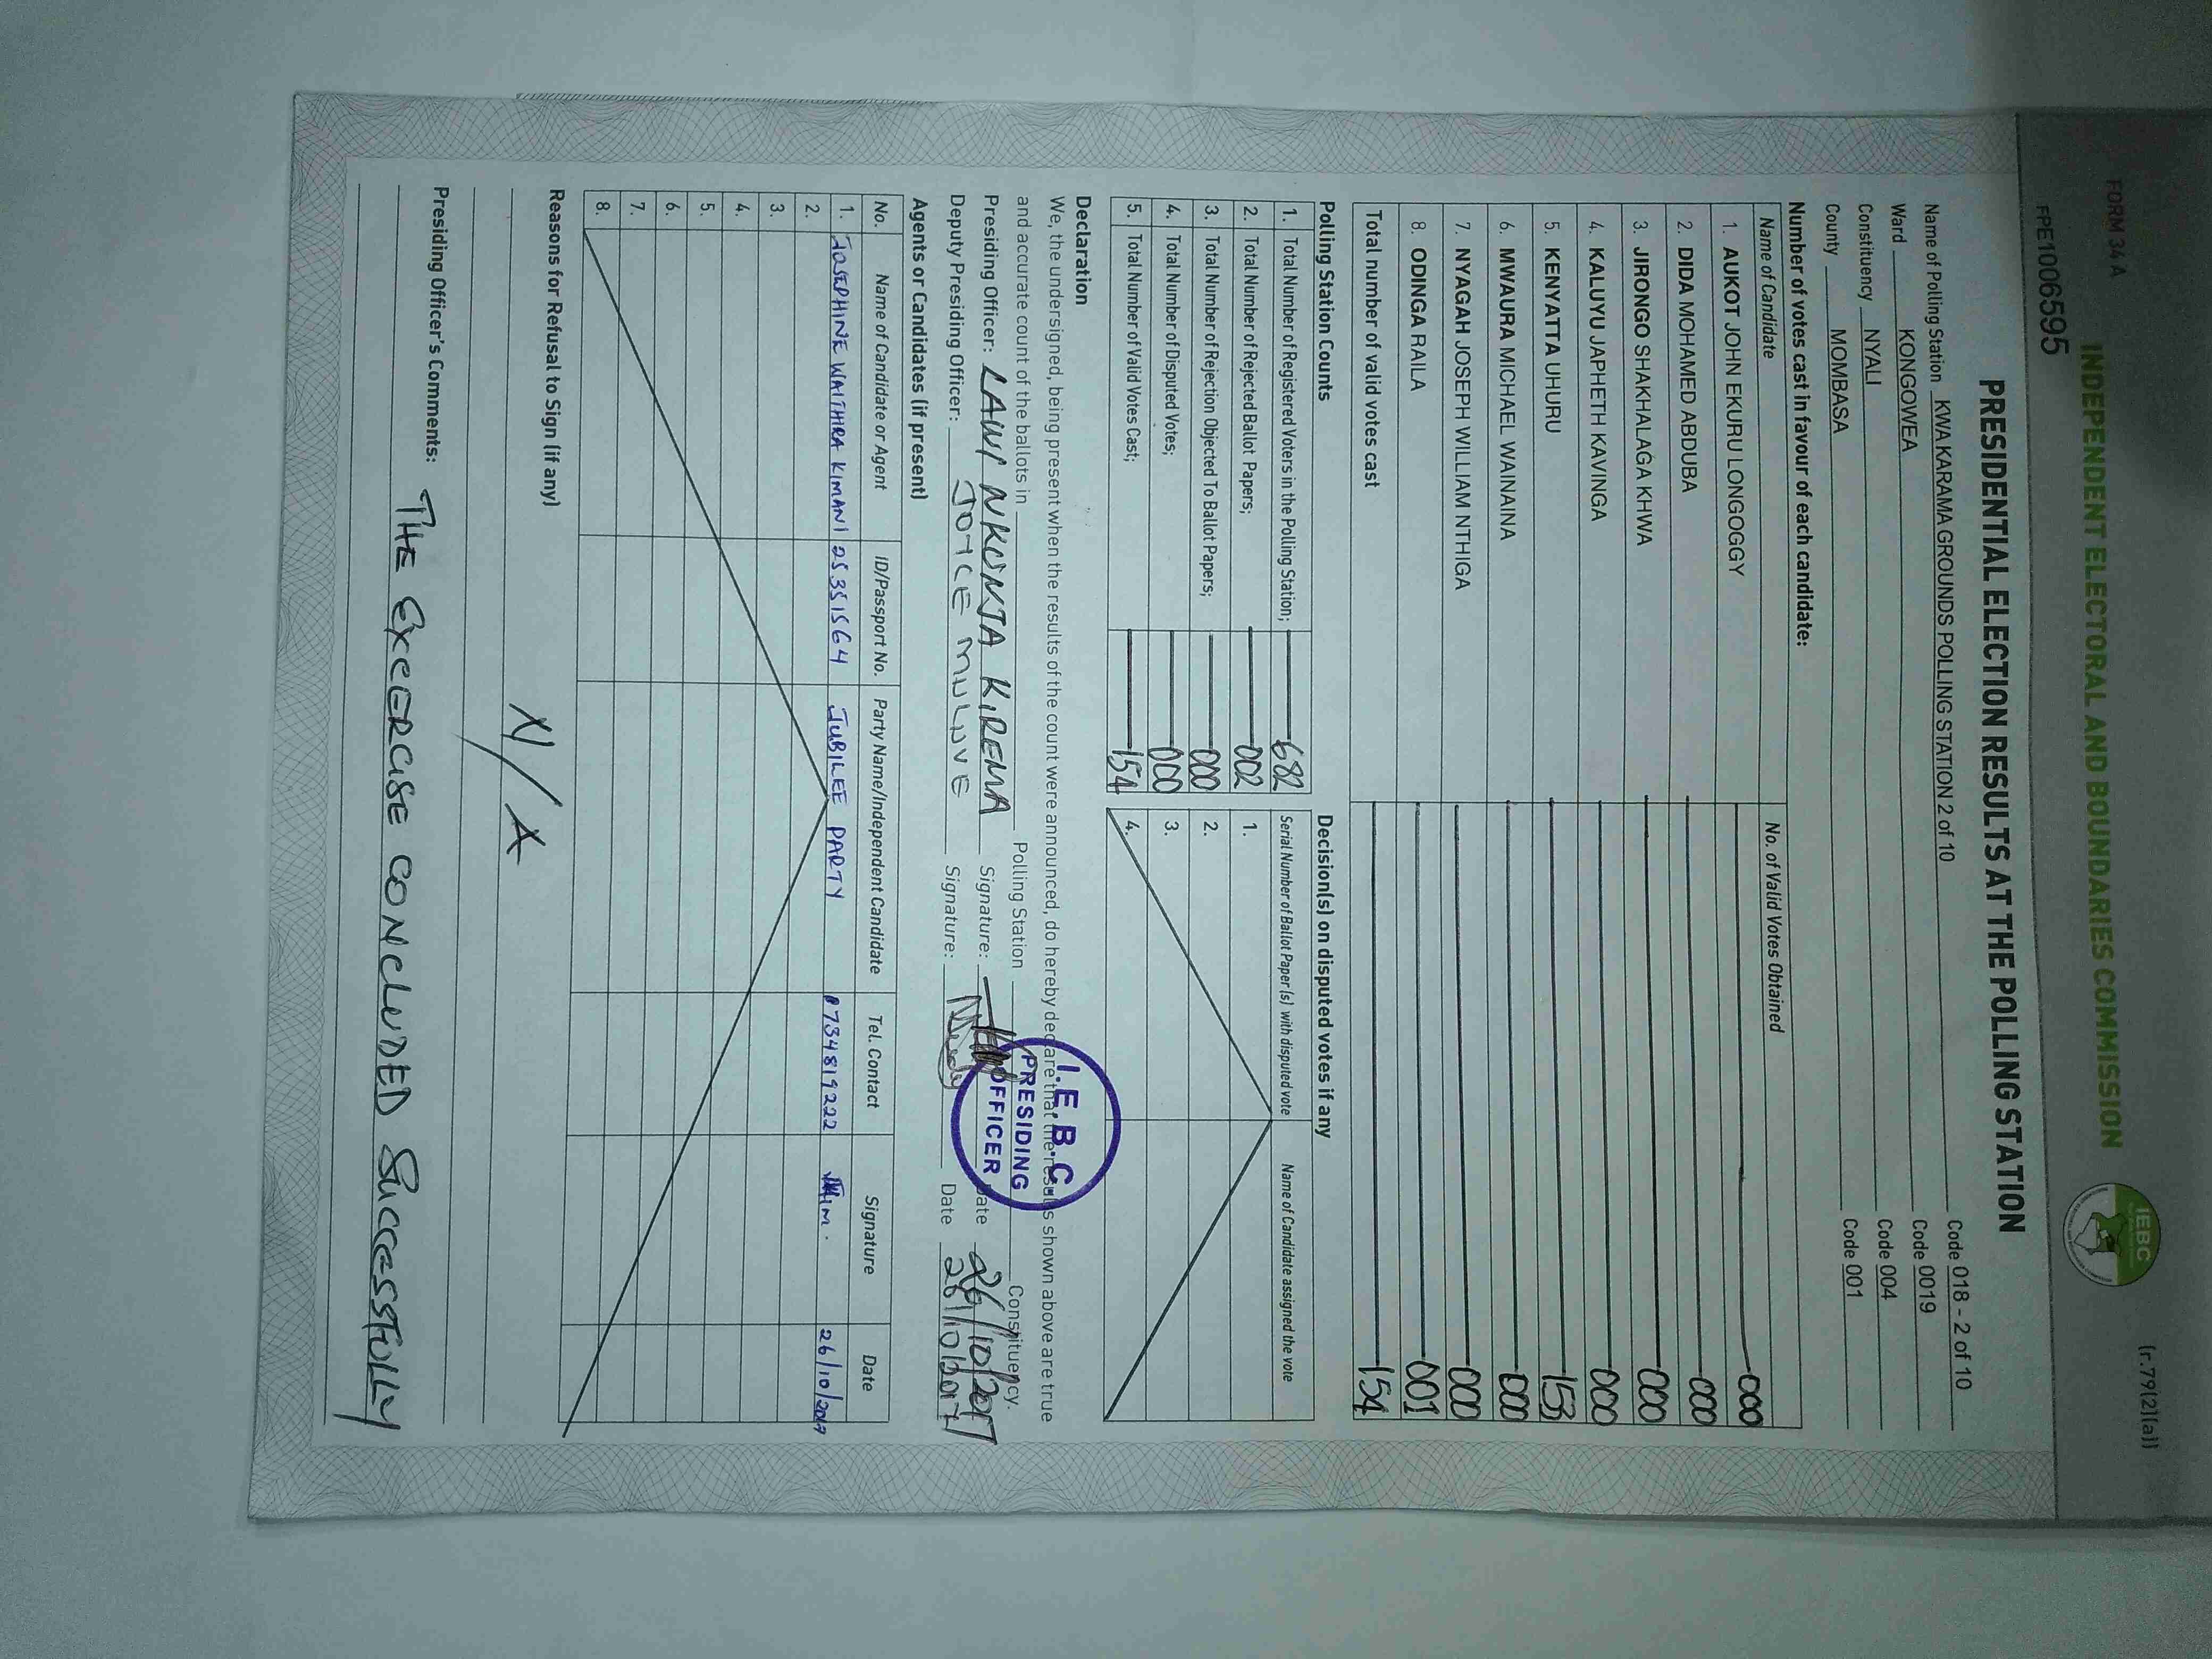 FORM 34 A
(r.79(2)(a))
INDEPENDENT ELECTORAL AND BOUNDARIES COMMISSION
IEBC
FPE1006595
PRESIDENTIAL ELECTION RESULTS AT THE POLLING STATION
Name of Polling Station KWA KARAMA GROUNDS POLLING STATION 2 of 10 Code 018 - 2 of 10
Ward KONGOWEA Code 0019
Constituency NYALI Code 004
County MOMBASA Code 001
Number of votes cast in favour of each candidate:
Name of Candidate No. of Valid Votes Obtained
1. AUKOT JOHN EKURU LONGOGGY 000
2. DIDA MOHAMED ABDUBA 000
3. JIRONGO SHAKHALAGA KHWA 000
4. KALUYU JAPHETH KAVINGA 000
5. KENYATTA UHURU 153
6. MWAURA MICHAEL WAINAINA 000
7. NYAGAH JOSEPH WILLIAM NTHIGA 000
8. ODINGA RAILA 001
Total number of valid votes cast 154
Polling Station Counts
1. Total Number of Registered Voters in the Polling Station; 682
2. Total Number of Rejected Ballot Papers; 002
3. Total Number of Rejection Objected To Ballot Papers; 000
4. Total Number of Disputed Votes; 000
5. Total Number of Valid Votes Cast; 154
Decision(s) on disputed votes if any
Serial Number of Ballot Paper (s) with disputed vote Name of Candidate assigned the vote
1.
2.
3.
4.
Declaration
We, the undersigned, being present when the results of the count were announced, do hereby declare that the results shown above are true
and accurate count of the ballots in Polling Station Constituency.
Presiding Officer: LAWI NKUNJA KIREMA Signature: Date 26/10/2017
Deputy Presiding Officer: JOYCE Signature: Date 26/10/2017
I.E.B.C.
PRESIDING
OFFICER
Agents or Candidates (if present)
No. Name of Candidate or Agent ID/Passport No. Party Name/Independent Candidate Tel. Contact Signature Date
1. JOSEPHINE KIMANI 25351564 JUBILEE PARTY 0734819222 26/10/2017
2.
3.
4.
5.
6.
7.
8.
Reasons for Refusal to Sign (if any)
N/A
Presiding Officer's Comments: THE EXCERCISE CONCLUDED SUCCESSFULLY